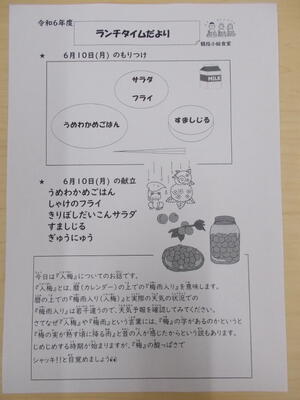 令和6年度
ランチタイムだより
★ 6月10日(月)のもりつけ
サラダ
フライ
MILK
うめわかめごはん
すましじる
★ 6月10日(月)の献立
うめわかめごはん
しゃけのフライ
きりぼしだいこんサラダ
すましじる
ぎゅうにゅう
今日は『入梅』についてのお話です。
『入梅』とは、暦(カレンダー)の上での『梅雨入り』を意味します。
暦の上での『梅雨入り(入梅)』と実際の天気の状況での
『梅雨入り』は若干違うので、天気予報を確認してみてください。
さてなぜ『入梅』や『梅雨』という言葉には、『梅』の字があるのかというと
『梅の実が熟す頃に降る雨』と昔の人が感じたからという説もあります。
じめじめする時期が始まりますが、『梅』の酸っぱさで
シャッキ!!と目覚めましょう